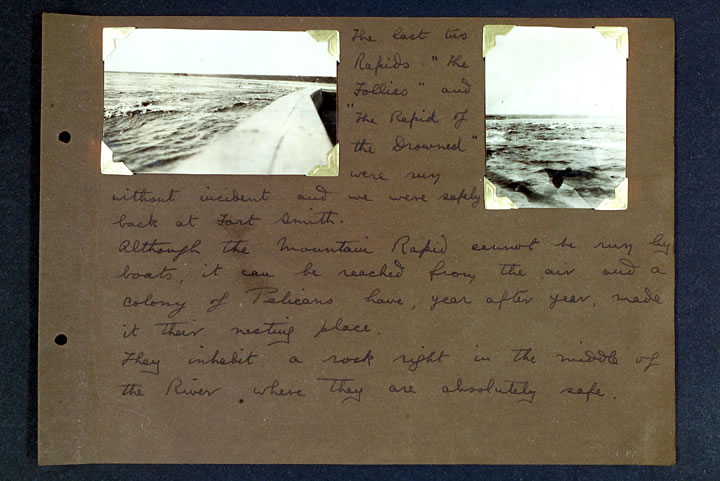 The last two
Rapids "The
Follies" and
"The Rapid of
the Drowned"
were run
without incident and we were safely
back at Fort Smith.
Although the Mountain Rapid cannot be run by
boats, it can be reached from the air and a
colony of Pelicans have, year after year, made
it their nesting place.
They inhabit a rock right in the middle of
the River where they are absolutely safe.